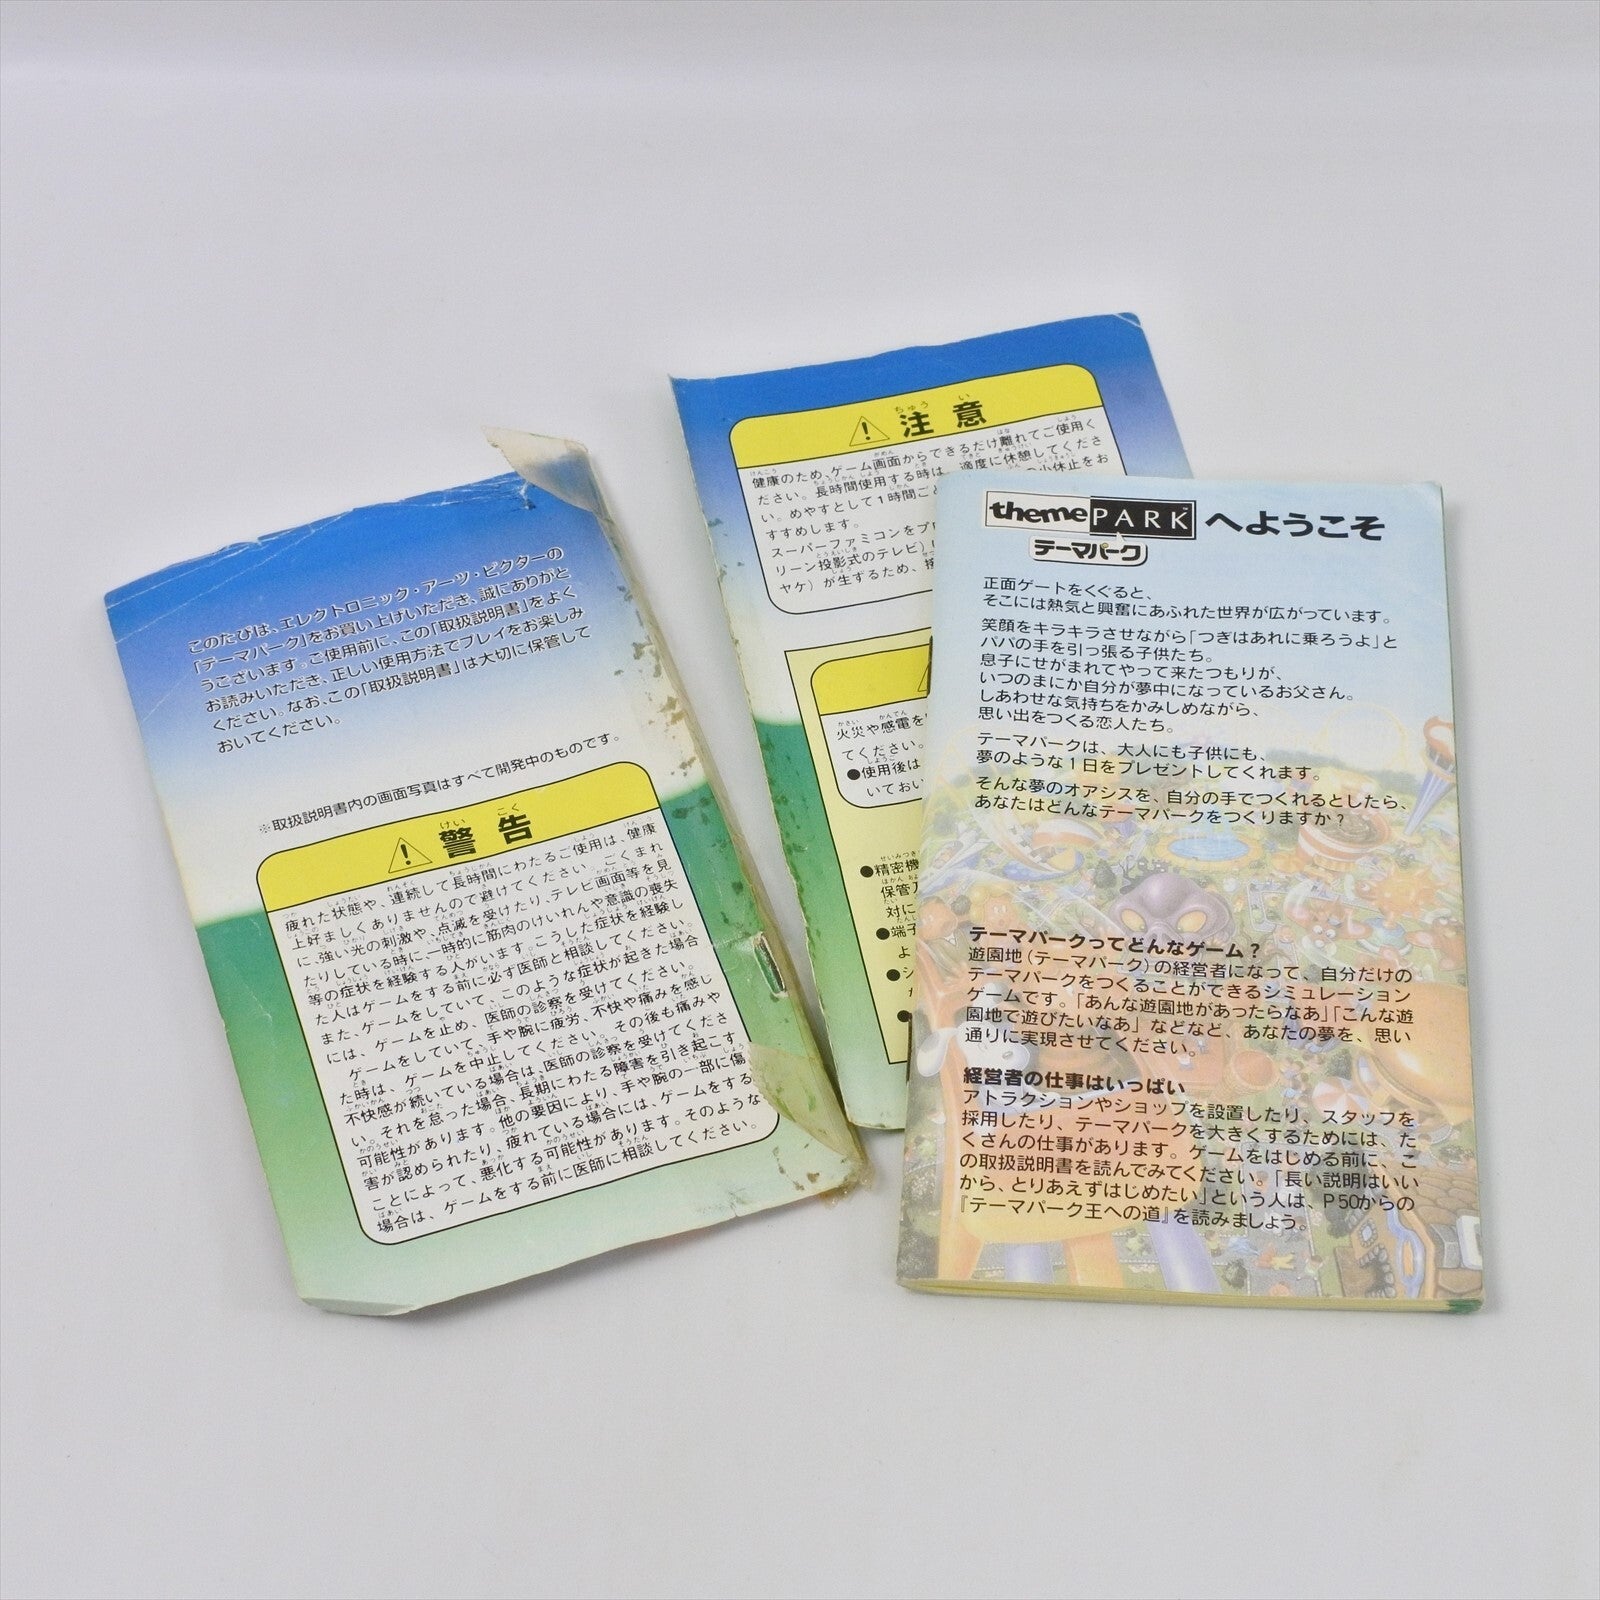 このたびは、エレクトロニック・アーツ・ビクターの
「テーマパーク」をお買い上げいただき、誠にありがと
うございます。ご使用前に、この「取扱説明書」をよく
お読みいただき、正しい使用方法でプレイをお楽しみ
ください。なお、この「取扱説明書」は大切に保管して
おいてください。
※取扱説明書内の画面写真はすべて開発中のものです。
警告
疲れた状態や、連続して長時間にわたるご使用は、健康
上好ましくありませんので避けてください。ごくまれ
に、強い光の刺激や、点滅を受けたり、テレビ画面等を見
たりしている時に、一時的に筋肉のけいれんや意識の喪失
等の症状を経験する人がいます。こうした症状を経験し
た人はゲームをする前に必ず医師と相談してください。
また、ゲームをしていて、このような症状が起きた場合
には、ゲームを止め、医師の診察を受けてください。
ゲームをしていて、手や腕に疲労、不快や痛みを感じ
た時は、ゲームを中止してください。その後も痛みや
不快感が続いている場合は、医師の診察を受けてくださ
い。それを怠った場合、長期にわたる障害を引き起こす
可能性があります。他の要因により、手や腕の一部に傷
害が認められたり、疲れている場合には、ゲームをする
ことによって、悪化する可能性があります。そのような
場合は、ゲームをする前に医師に相談してください。
注意
健康のため、ゲーム画面からできるだけ離れてご使用く
ださい。長時間使用する時は、適度に休憩してくださ
い。めやすとして1時間ご の小休止をお
すすめします。
スーパーファミコンをプロ
リーン投影式のテレビ)
ヤケ)が生ずるため、
火災や感電を
てください。
●使用後は
いておい
●精密機
保管
対に
●端子
よ
themePARK へようこそ
テーマパーク
正面ゲートをくぐると、
そこには熱気と興奮にあふれた世界が広がっています。
笑顔をキラキラさせながら「つぎはあれに乗ろうよ」と
パパの手を引っ張る子供たち。
息子にせがまれてやって来たつもりが、
いつのまにか自分が夢中になっているお父さん。
しあわせな気持ちをかみしめながら、
思い出をつくる恋人たち。
テーマパークは、大人にも子供にも、
夢のような1日をプレゼントしてくれます。
そんな夢のオアシスを、自分の手でつくれるとしたら、
あなたはどんなテーマパークをつくりますか?
テーマパークってどんなゲーム?
遊園地(テーマパーク)の経営者になって、自分だけの
テーマパークをつくることができるシミュレーション
ゲームです。「あんな遊園地があったらなあ」「こんな遊
園地で遊びたいなあ」などなど、あなたの夢を、思い
通りに実現させてください。
経営者の仕事はいっぱい
アトラクションやショップを設置したり、スタッフを
採用したり、テーマパークを大きくするためには、た
くさんの仕事があります。ゲームをはじめる前に、こ
の取扱説明書を読んでみてください。「長い説明はいい
から、とりあえずはじめたい」という人は、P50からの
『テーマパーク王への道』を読みましょう。